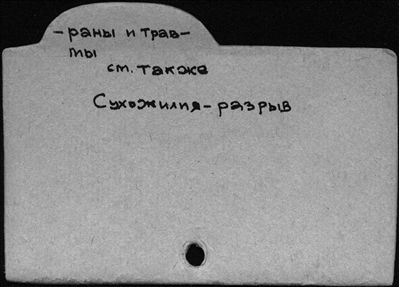 -раны и трав-
мы
см. также
Сухожилия-разрыв